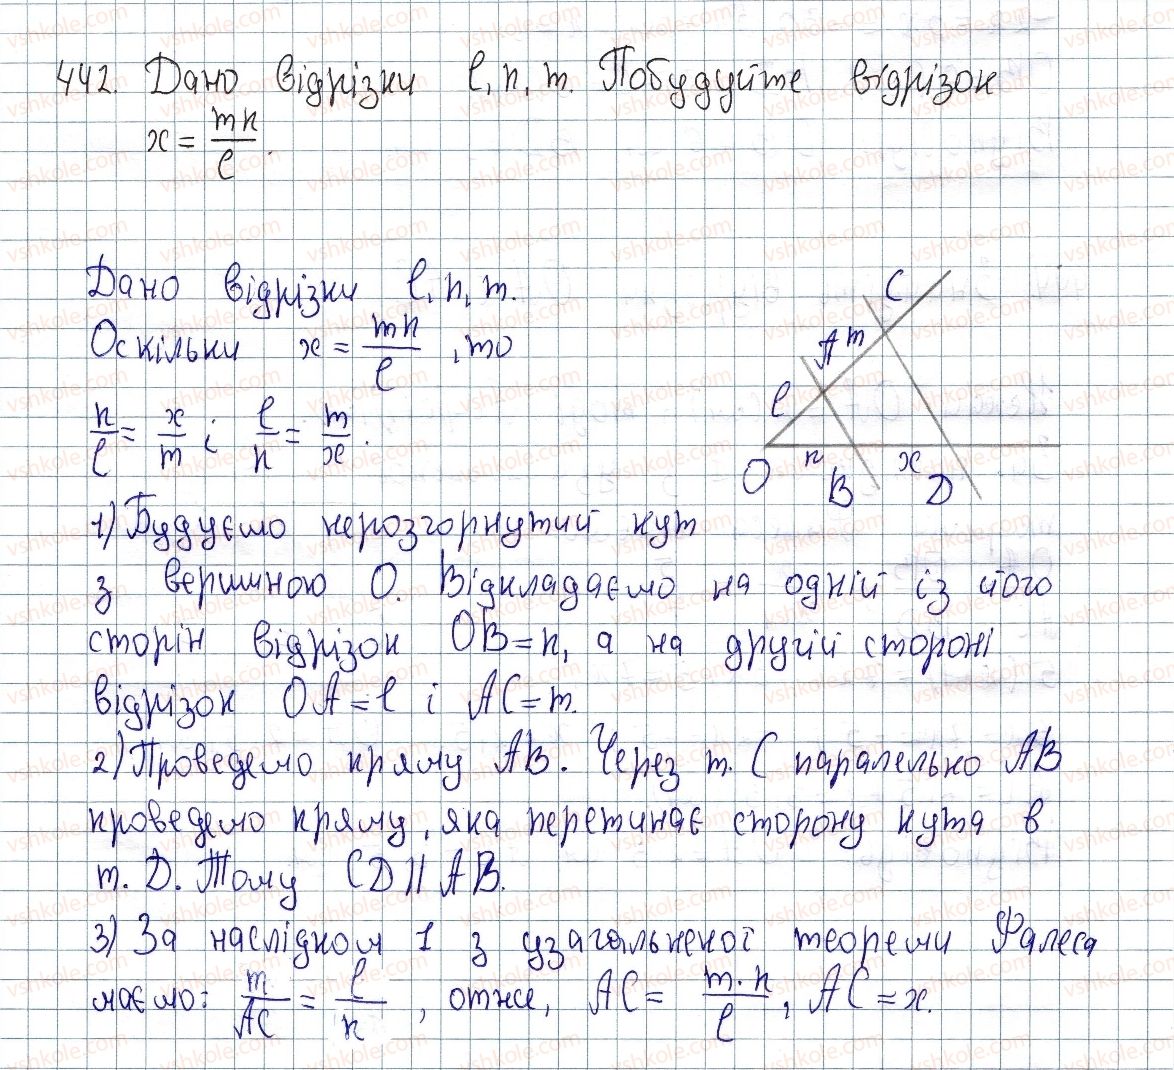 442. Дано відрізки l, n, m. Побудуйте відрізок
x = mn/l.
Дано відрізки l, n, m.
Оскільки x = mn/l, то
n/l = x/m i l/n = m/x.
C
A m
l
O n B x D
1) Будуємо нерозгорнутий кут
з вершиною O. Відкладаємо на одній із його
сторін відрізок OB = n, а на другій стороні
відрізок OA = l і AC = m.
2) Проведемо пряму AB. Через т. C паралельно AB
проведемо пряму, яка перетинає сторону кута в
т. D. Тому CD || AB.
3) За наслідком 1 з узагальненої теореми Фалеса
маємо: m/AC = l/n, отже, AC = m·n/l, AC = x.